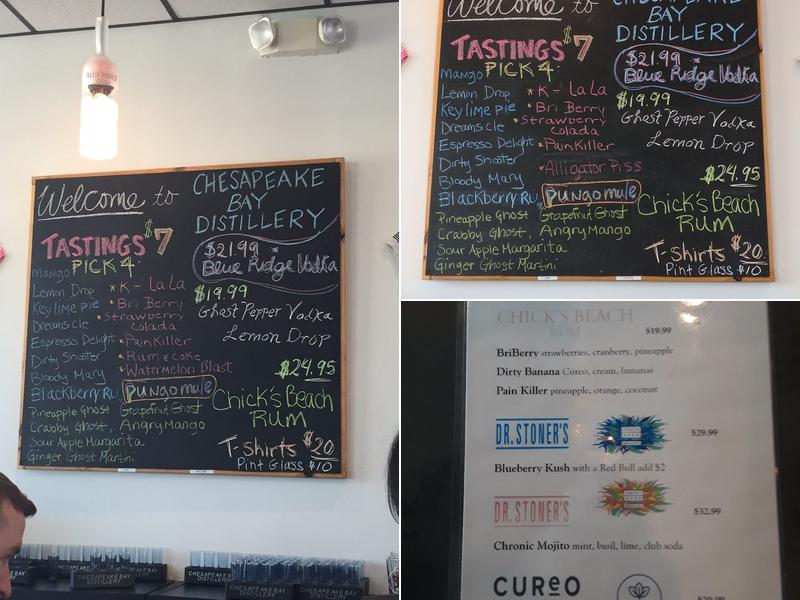 BLUE RIDGE
Welcome to
CHESAPEAKE
BAY
DISTILLERY
TASTINGS $7
PICK 4:
Mango
Lemon Drop
Key lime pie
Dreamsicle
Espresso Delight
Dirty Shooter
Bloody Mary
Blackberry Ru
Pineapple Ghost
Crabby Ghost,
Sour Apple Margarita
Ginger Ghost Martini
* K- La La
* Bri Berry
* Strawberry
Colada
* PainKiller
* Rum & Coke
* Watermelon Blast
Pungo mule
Grapefruit Ghost
Angry Mango
$21.99
Blue Ridge Vodka
$19.99
Ghost Pepper Vodka
Lemon Drop
$24.95
Chick's Beach
Rum
T-shirts $20
Pint Glass $10
CHESAPEAKE BAY
DISTILLERY
CHESAPEAKE BAY
DISTILLERY
CHESAPEAKE BAY
DISTILLERY
CHESAPEAKE BAY
DISTILLERY
Welcome to
CHESAPEAKE
BAY
DISTILLERY
TASTINGS $7
PICK 4:
Mango
Lemon Drop
Key lime pie
Dreamsicle
Espresso Delight
Dirty Shooter
Bloody Mary
Blackberry Ru
Pineapple Ghost
Crabby Ghost,
Sour Apple Margarita
Ginger Ghost Martini
* K- La La
* Bri Berry
* Strawberry
Colada
* PainKiller
* Alligator Piss
Pungo mule
Grapefruit Ghost
Angry Mango
$21.99
Blue Ridge Vodka
$19.99
Ghost Pepper Vodka
Lemon Drop
$24.95
Chick's Beach
Rum
T-shirts $20
Pint Glass $10
CHICK'S BEACH
RUM
$19.99
BriBerry strawberries, cranberry, pineapple
Dirty Banana Cureo, cream, bananas
Pain Killer pineapple, orange, coconut
DR. STONER'S
$29.99
Blueberry Kush with a Red Bull add $2
DR. STONER'S
$32.99
Chronic Mojito mint, basil, lime, club soda
CUReO